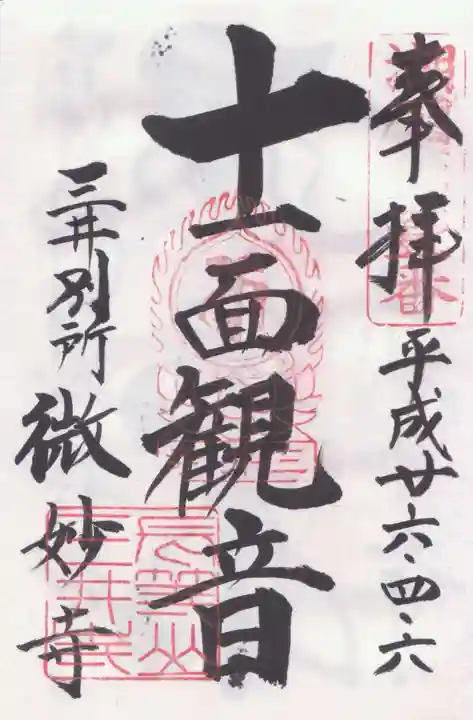 奉拝 平成廿六・四・六
十一面観音
三井別所 微妙寺